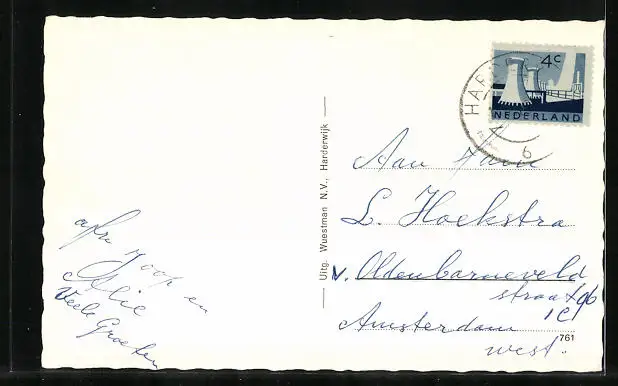 4c
NEDERLAND
b
Uitg. Wuestman N.V., Harderwijk
Aan Fam
L. Hoekstra
v. Oldenbarneveld
straat
Amsterdam
west.
761
afz. Joop en
Alie
Veele Groeten